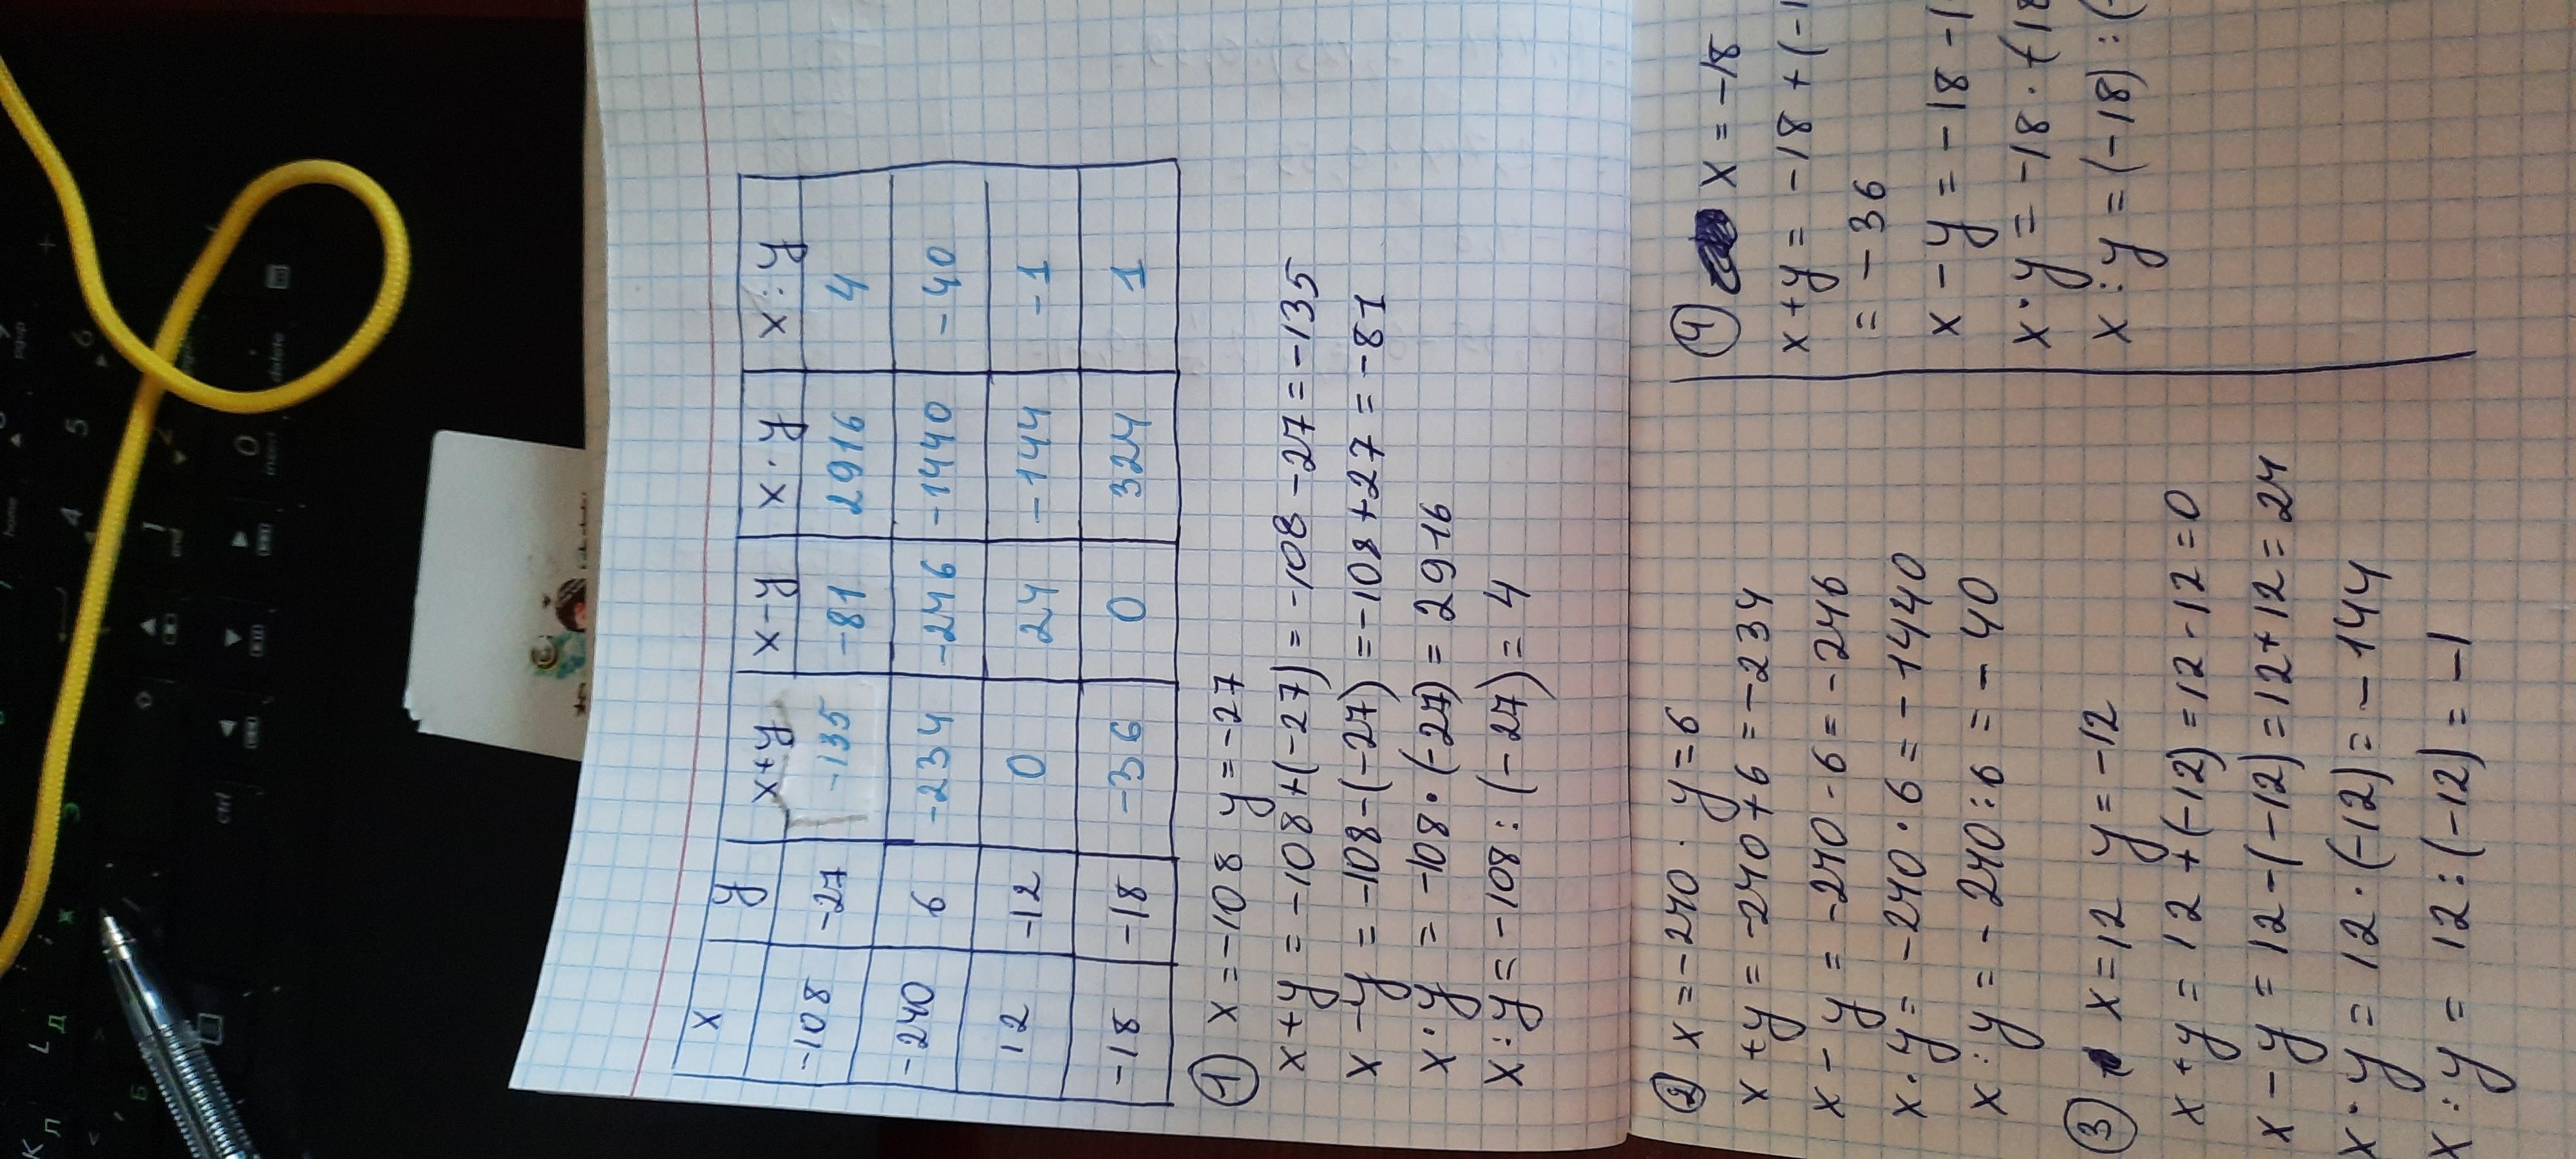 x y x+y x-y x·y x:y
-108 -27 -135 -81 2916 4
-240 6 -234 -246 -1440 -40
12 -12 0 24 -144 -1
-18 -18 -36 0 324 1
① x=-108 y=-27
x+y=-108+(-27)=-108-27=-135
x-y=-108-(-27)=-108+27=-81
x·y=-108·(-27)=2916
x:y=-108:(-27)=4
② x=-240. y=6
x+y=-240+6=-234
x-y=-240-6=-246
x·y=-240·6=-1440
x:y=-240:6=-40
③ x=12 y=-12
x+y=12+(-12)=12-12=0
x-y=12-(-12)=12+12=24
x·y=12·(-12)=-144
x:y=12:(-12)=-1
④ x=-18
x+y=-18+(-1
=-36
x-y=-18-1
x·y=-18·(18
x:y=(-18):(-
ctrl
end
0
insert
delete
home
4
5
6
2
К
Л
Д
Б
Ж
Э